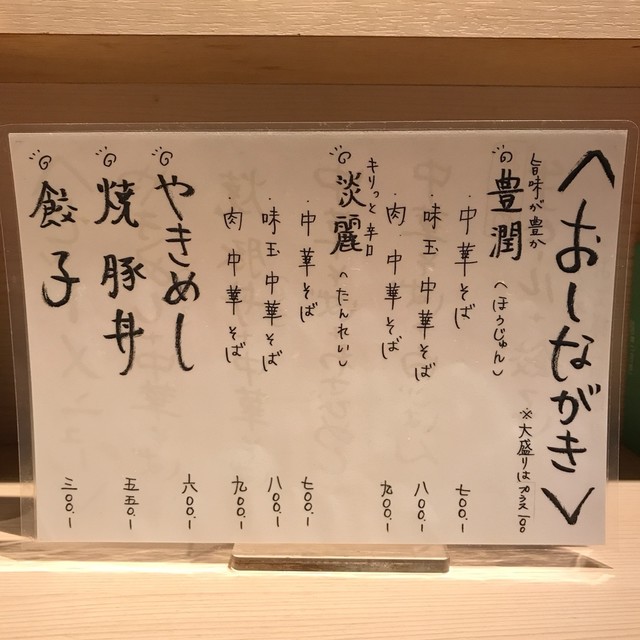 〈おしながき〉
※大盛りはプラス一〇〇
旨味が豊か
豊潤〈ほうじゅん〉
・中華そば 七〇〇.ー
・味玉中華そば 八〇〇.ー
・肉中華そば 九〇〇.ー
キリっと辛口
淡麗〈たんれい〉
・中華そば 七〇〇.ー
・味玉中華そば 八〇〇.ー
・肉中華そば 九〇〇.ー
やきめし 六〇〇.ー
焼豚丼 五五〇.ー
餃子 三〇〇.ー